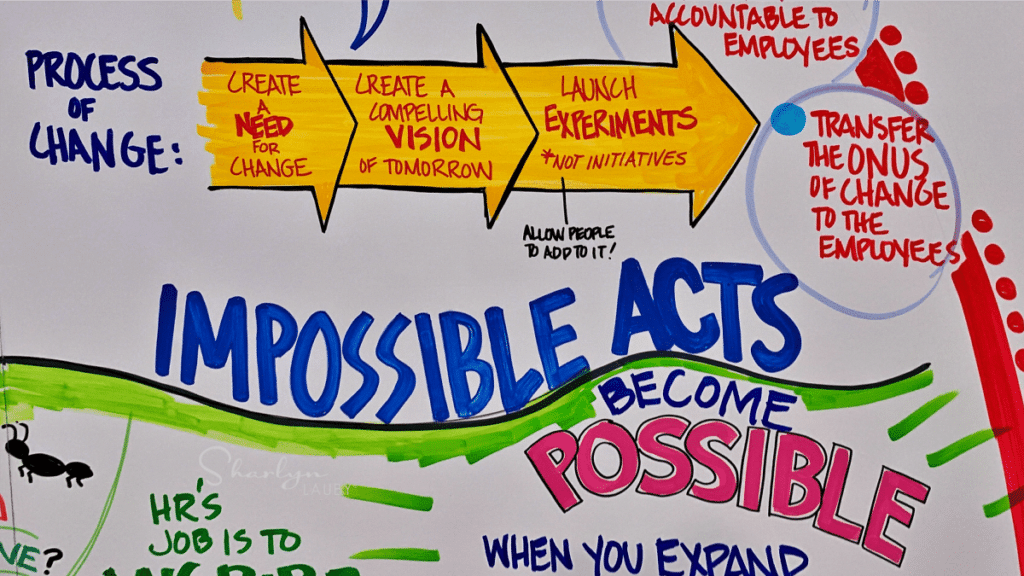 ACCOUNTABLE TO
EMPLOYEES
PROCESS
OF
CHANGE:
CREATE
A
NEED
FOR
CHANGE
CREATE A
COMPELLING
VISION
OF TOMORROW
LAUNCH
EXPERIMENTS
*NOT INITIATIVES
ALLOW PEOPLE
TO ADD TO IT!
TRANSFER
THE ONUS
OF CHANGE
TO THE
EMPLOYEES
IMPOSSIBLE ACTS
BECOME
POSSIBLE
Sharlyn
LAUBY
HR'S
JOB IS TO
WHEN YOU EXPAND